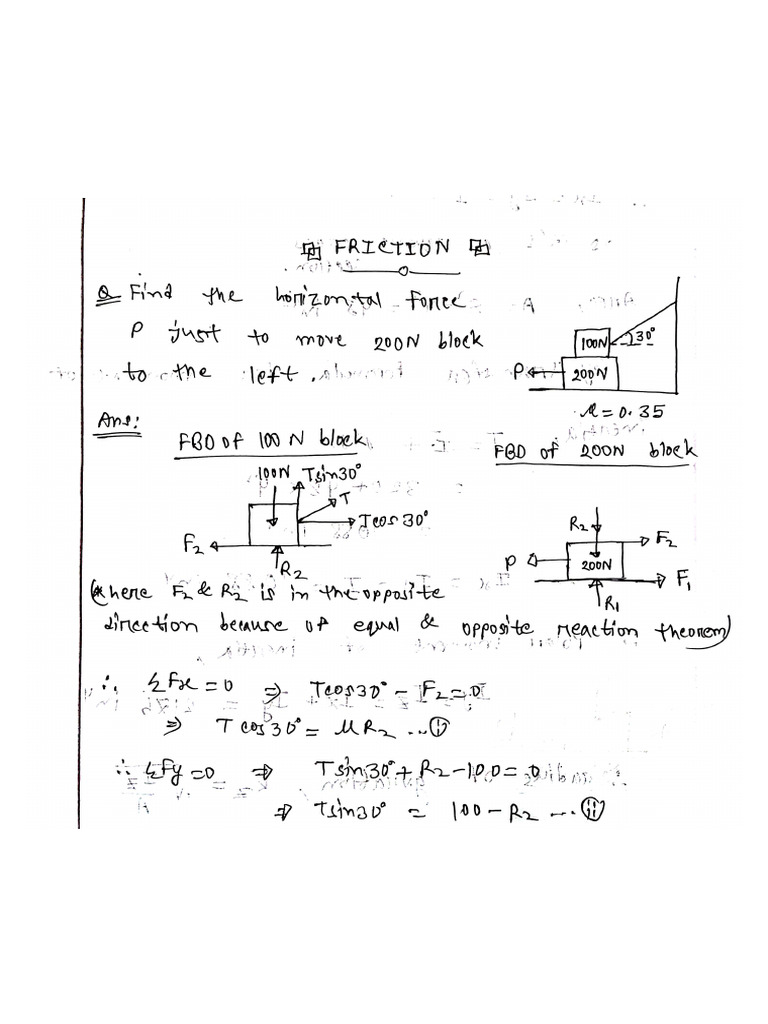 FRICTION
Q Find the horizontal force
P just to move 200N block
to the left.
100N 30°
P 200N
μ = 0.35
Ans:
FBD of 100 N block
FBD of 200N block
100N Tsin30°
T
Tcos30°
F2
R2
R2 F2
P 200N
F1
R1
(* here F2 & R2 is in the opposite
direction because of equal & opposite reaction theorem)
∴ ΣFx = 0 ⇒ Tcos30° - F2 = 0
⇒ Tcos30° = μR2 ... (i)
∴ ΣFy = 0 ⇒ Tsin30° + R2 - 100 = 0
⇒ Tsin30° = 100 - R2 ... (ii)